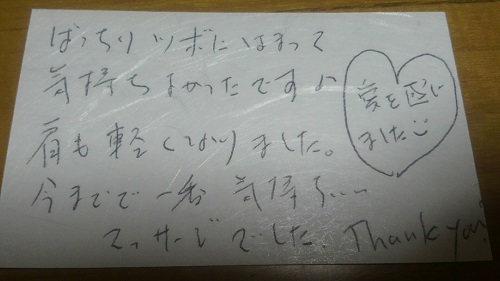 ばっちりツボにはまって
気持ちよかったです♪
肩も軽くなりました。
今までで一番 気持ちいい
マッサージでした。Thank you!
愛を感じ
ました